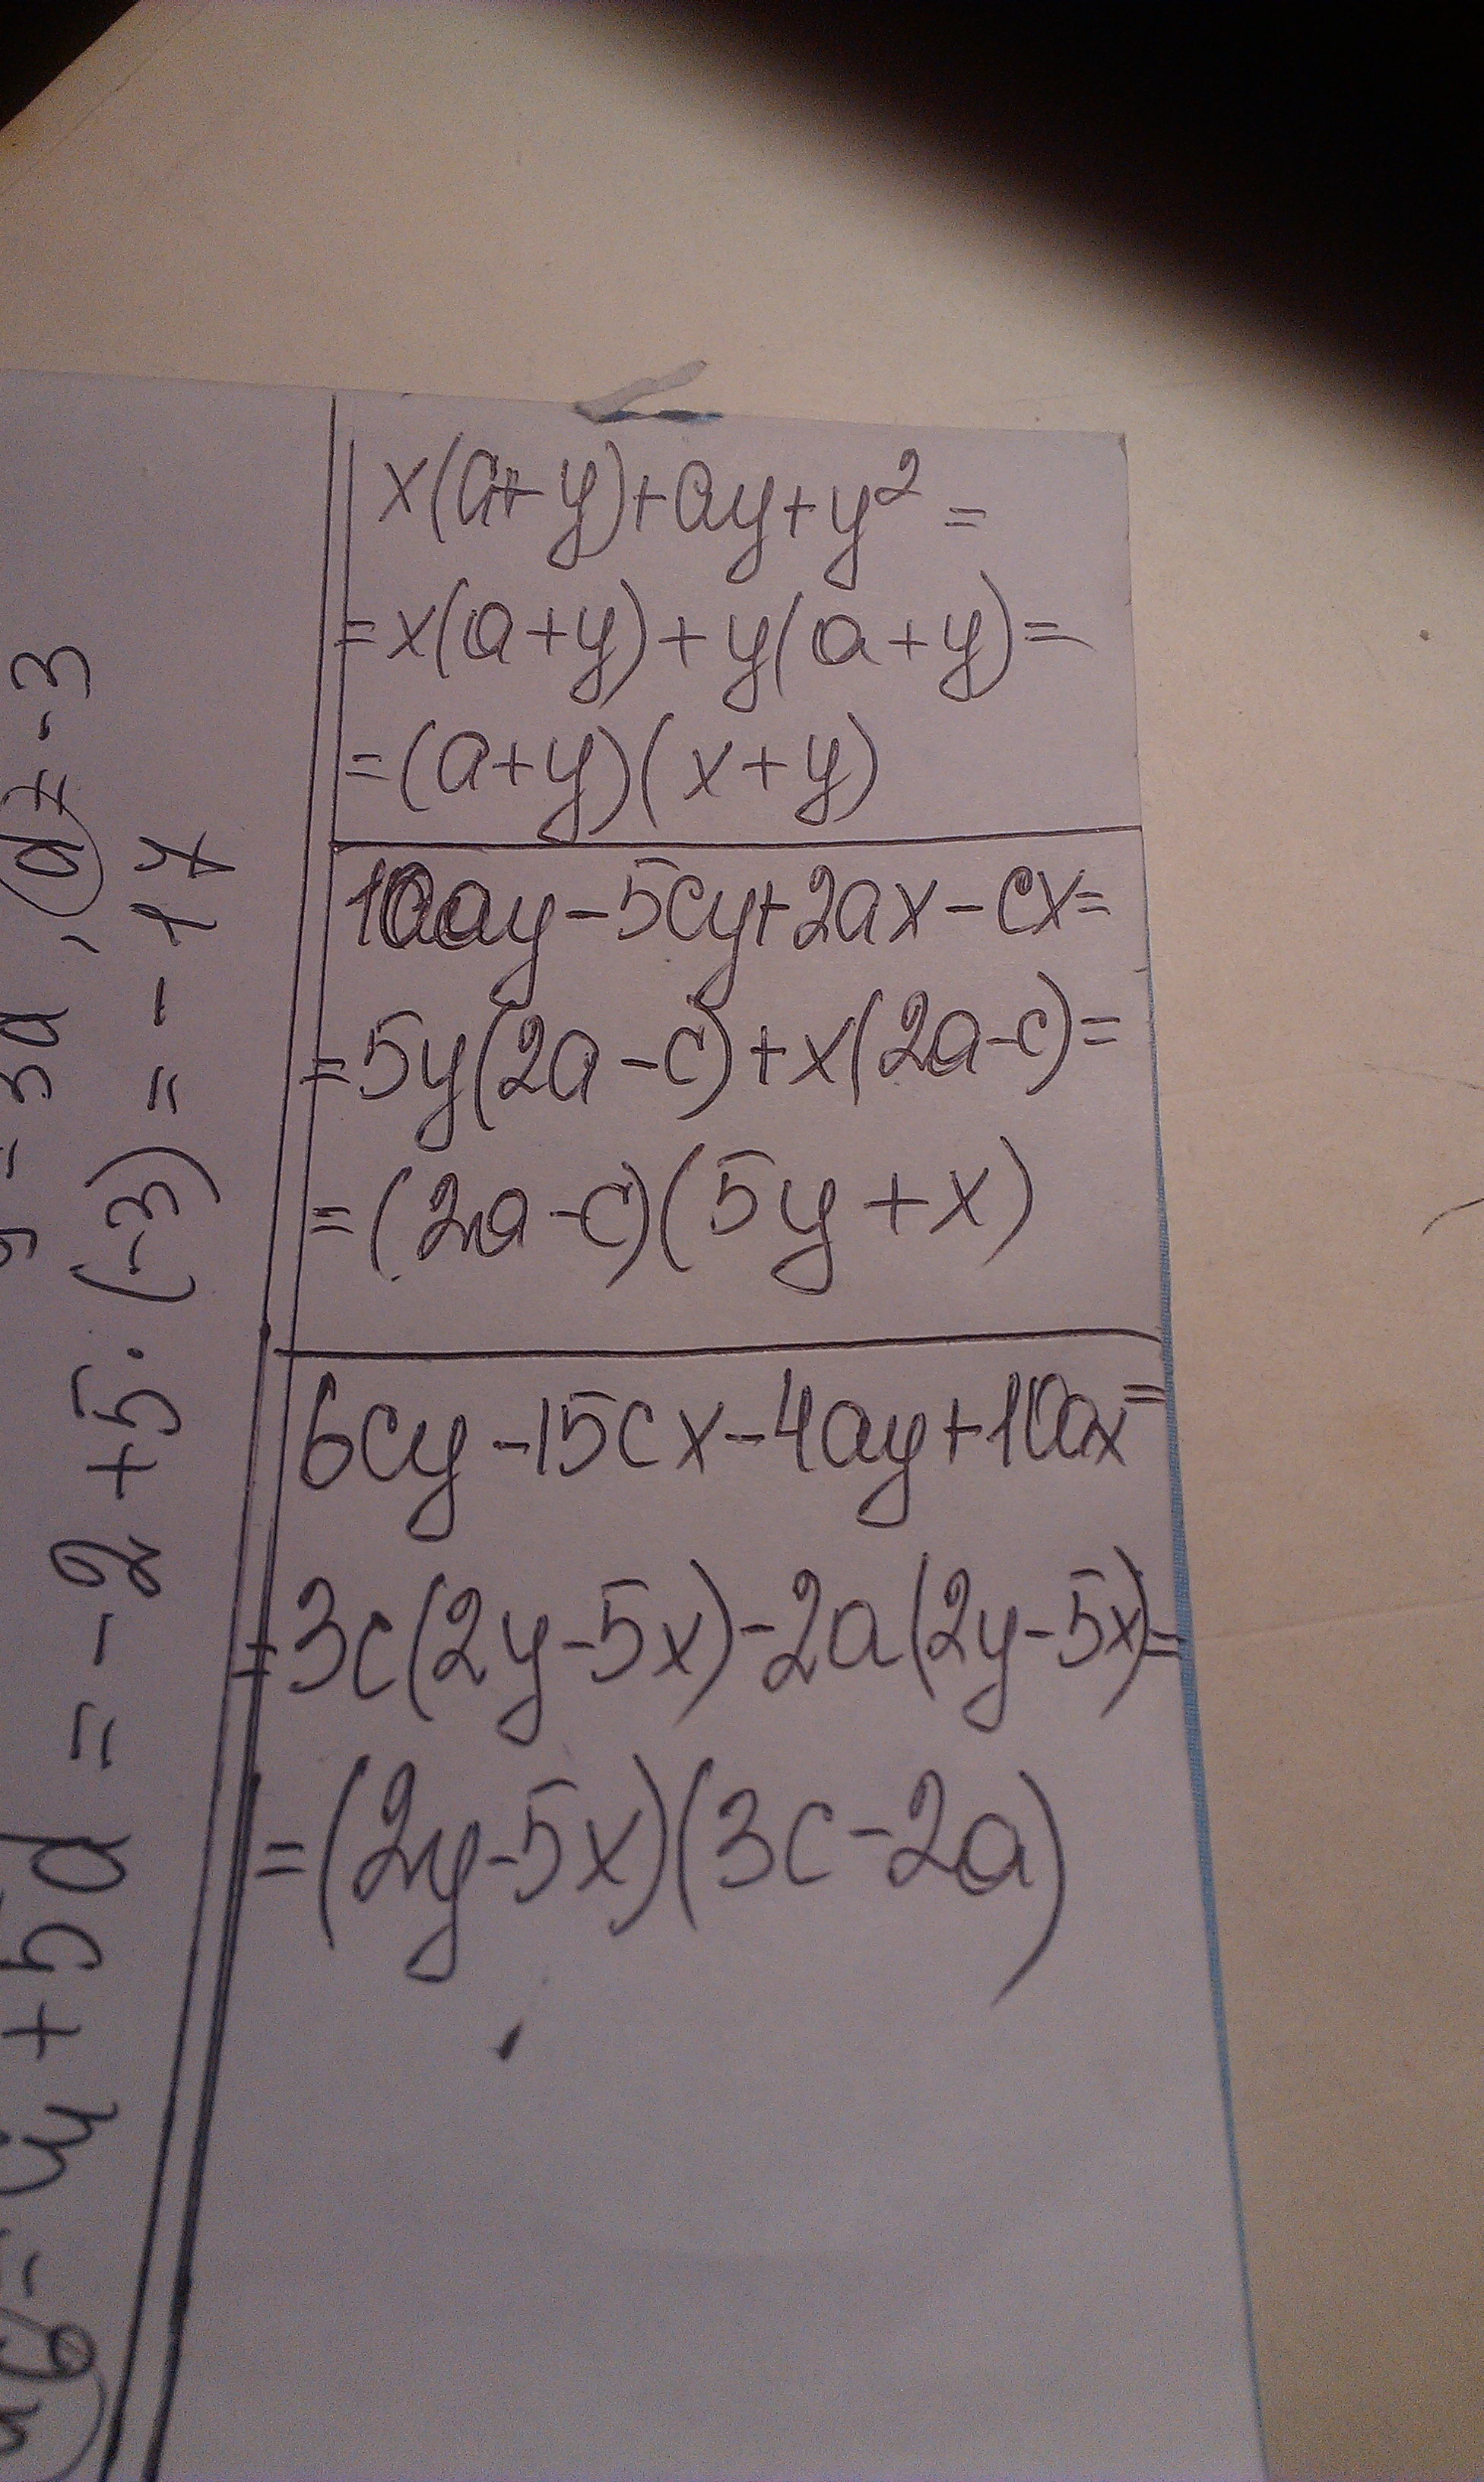 x(a+y)+ay+y²=
=x(a+y)+y(a+y)=
=(a+y)(x+y)
10ay-5cy+2ax-cx=
=5y(2a-c)+x(2a-c)=
=(2a-c)(5y+x)
6cy-15cx-4ay+10ax=
=3c(2y-5x)-2a(2y-5x)=
=(2y-5x)(3c-2a)
+5d = -2 +5·(-3) = -17